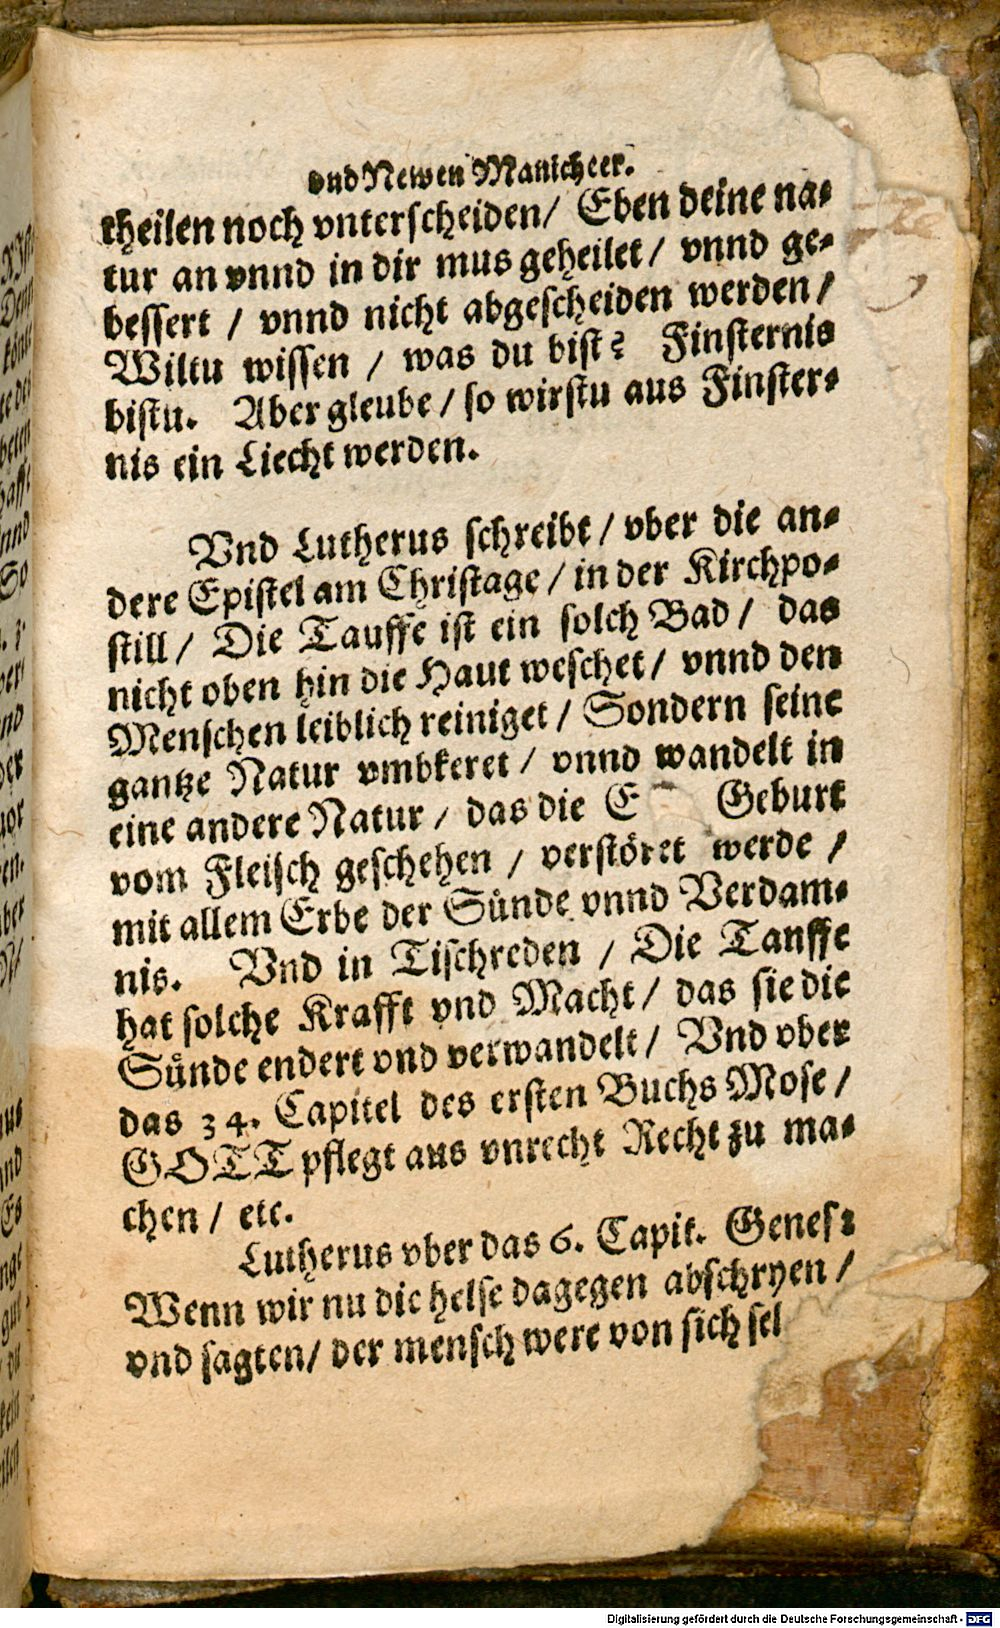 vnd Newen Manicheer.
theilen noch vnterscheiden/ Eben deine na-
tur an vnnd in dir mus geheilet/ vnnd ge-
bessert / vnnd nicht abgescheiden werden/
Wiltu wissen / was du bist? Finsternis
bistu. Aber gleube/ so wirstu aus Finster-
nis ein Liecht werden.
Vnd Lutherus schreibt/ vber die an-
dere Epistel am Christage/ in der Kirchpo-
still/ Die Tauffe ist ein solch Bad/ das
nicht oben hin die Haut weschet/ vnnd den
Menschen leiblich reiniget/ Sondern seine
gantze Natur vmbkeret/ vnnd wandelt in
eine andere Natur/ das die E Geburt
vom Fleisch geschehen / verstöret werde /
mit allem Erbe der Sünde vnnd Verdam-
nis. Vnd in Tischreden / Die Tanffe
hat solche Krafft vnd Macht/ das sie die
Sünde endert vnd verwandelt/ Vnd vber
das 34. Capitel des ersten Buchs Mose/
GOTT pflegt aus vnrecht Recht zu ma-
chen/ etc.
Lutherus vber das 6. Capit. Genes:
Wenn wir nu die helse dagegen abschryen/
vnd sagten/ der mensch were von sich sel
Digitalisierung gefördert durch die Deutsche Forschungsgemeinschaft - DFG